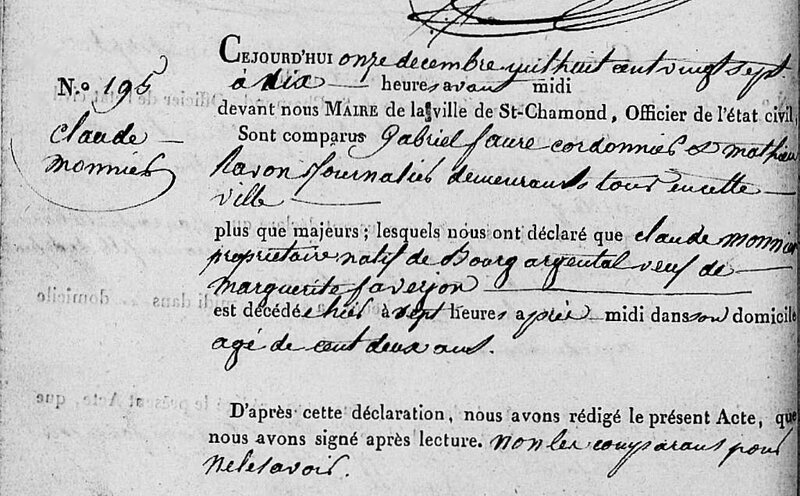 N.o 195
claude
monnier
CEJOURD'HUI onze decembre yuit huit cent vingt sept
à dix heures avant midi
devant nous MAIRE de la ville de St-Chamond, Officier de l'état civil,
Sont comparus Gabriel faure cordonnier & mathieu
ravon Journalier demeurants tous en cette
ville
plus que majeurs; lesquels nous ont déclaré que claude monnier
propriétaire natif de Bourg argental veuf de
marguerite faverjon
est décédé hier à sept heures après midi dans son domicile
agé de cent deux ans.
D'après cette déclaration, nous avons rédigé le présent Acte, que
nous avons signé après lecture. non les comparans pour
ne le savoir.